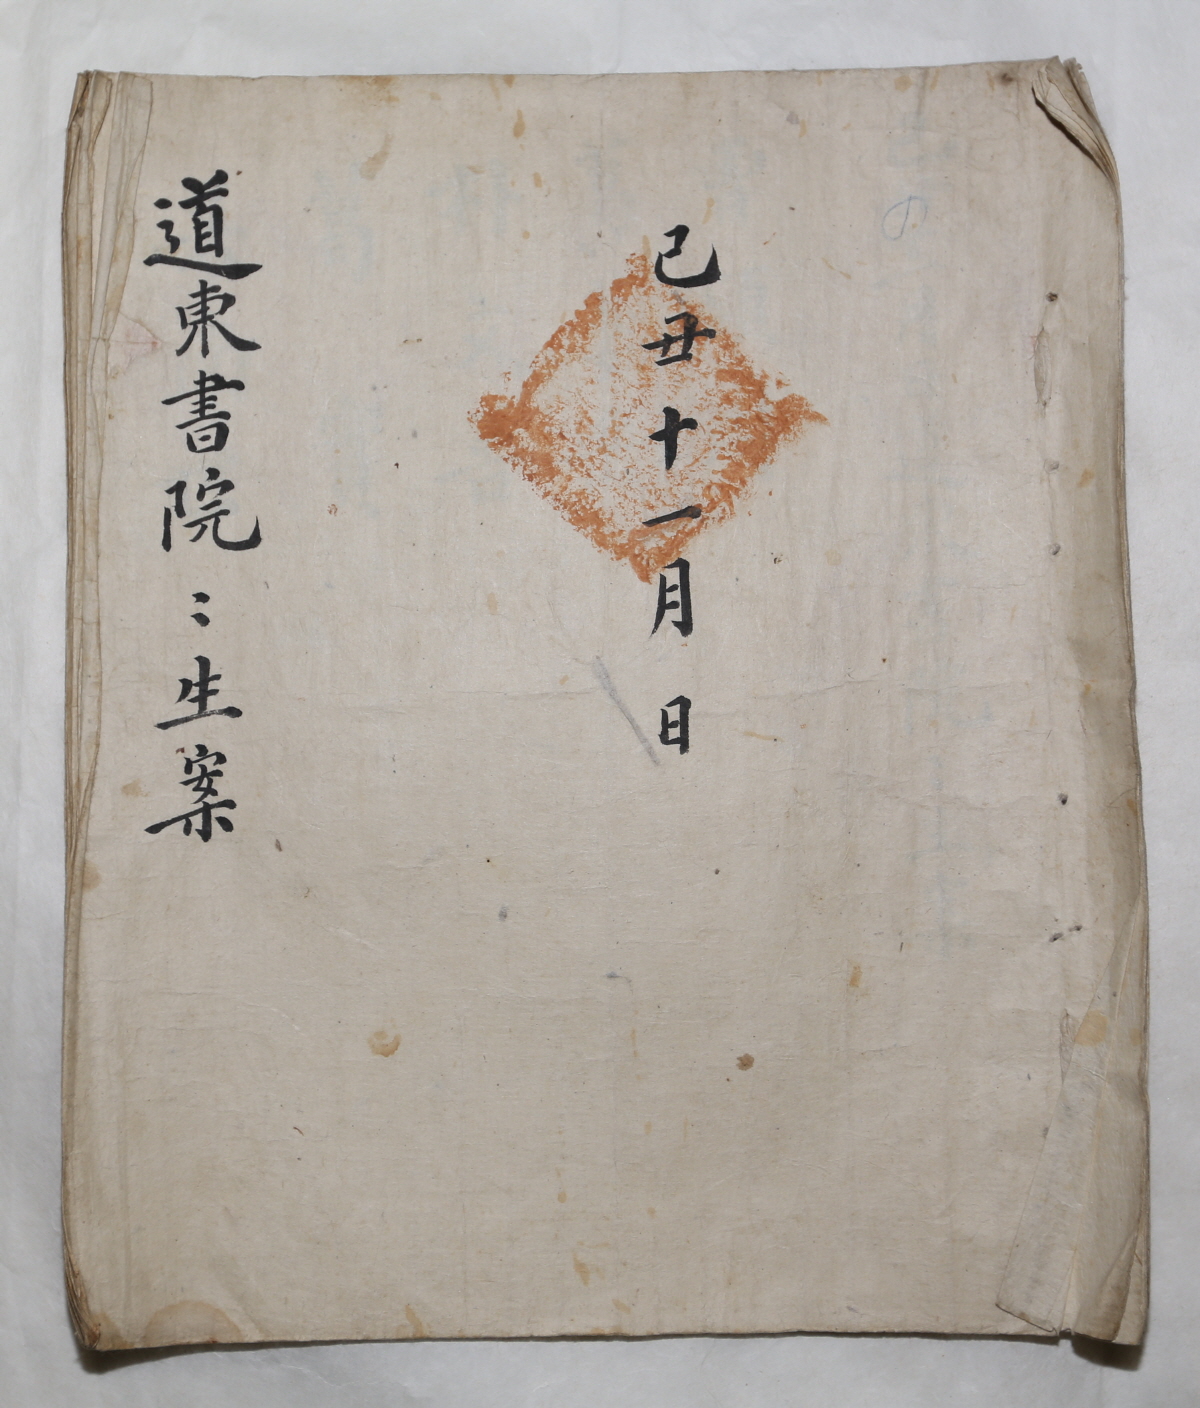 己丑十一月 日
道東書院〻生案